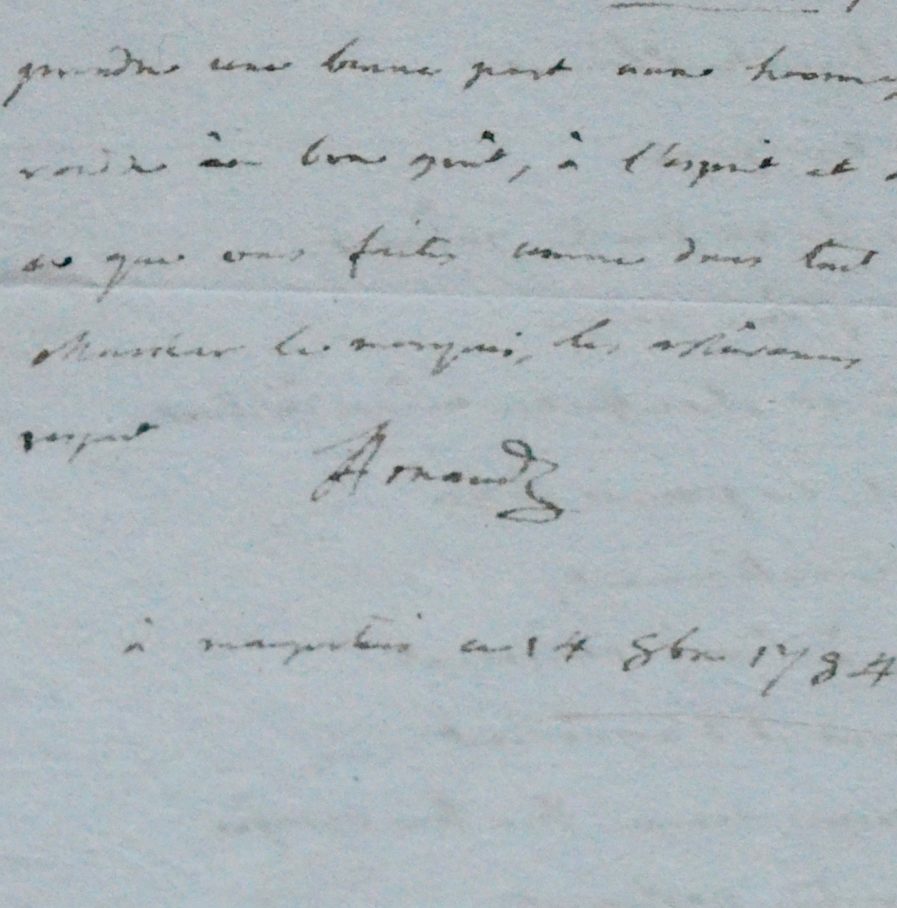 prendre une bonne part aux homma
rendre au bon goût, à l'esprit et
ce que vous faites comme dans tout
Monsieur le marquis, les
respect
Arnaud
à ce 14 8bre 1784